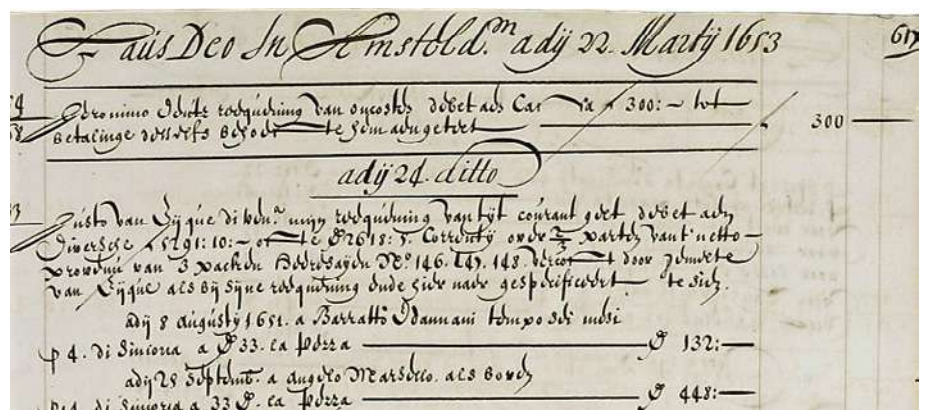 Laus Deo In Amstold.m adij 22. Martij 1653 617
Jeronimo reequening van oncosten debet aen Cassa ƒ 300:– tot
betalinge te hem aengetelt 300
adij 24. ditto
Justo van Eijque di Ven.a mijn reequening van tijt courant gelt debet aen
Diversche ƒ 5291:10:– D 2618: 5. Correntij over 2/3 parten vant netto
provenu van 3 packen No. 146. 147. 148. vercoft door
van Eijque als bij sijne reequening ende hier naer gespecificeert te sien.
adij 8 augustij 1651. a Barratto tempo sei mesi
p 4. di Siniora a D 33. la pezza D 132:–
adij 28 Septemb. a angelo Marsello. als boven
di siniora a 33 D. la pezza D 448:–